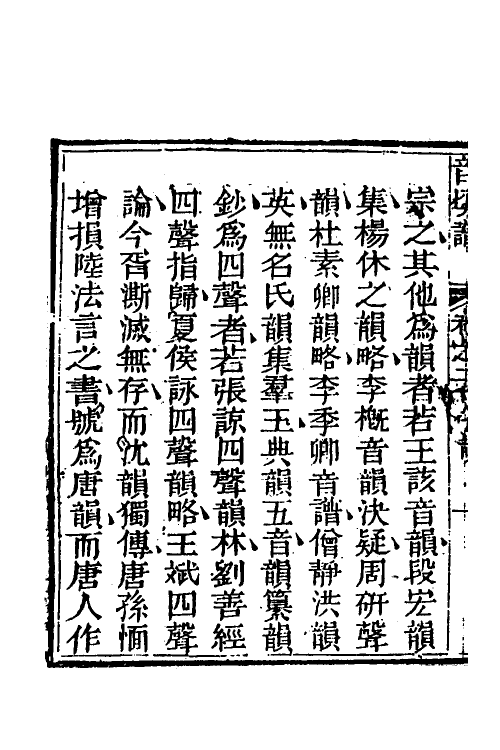 宗之其他爲韻者若王該音韻段宏韻
集楊休之韻略李槪音韻決疑周研聲
韻杜素卿韻略李季卿音譜僧靜洪韻
英無名氏韻集羣玉典韻五音韻纂韻
鈔爲四聲者若張諒四聲韻林劉善經
四聲指歸夏侯詠四聲韻略王斌四聲
論今胥澌滅無存而沈韻獨傳唐孫愐
增損陸法言之書號爲唐韻而唐人作